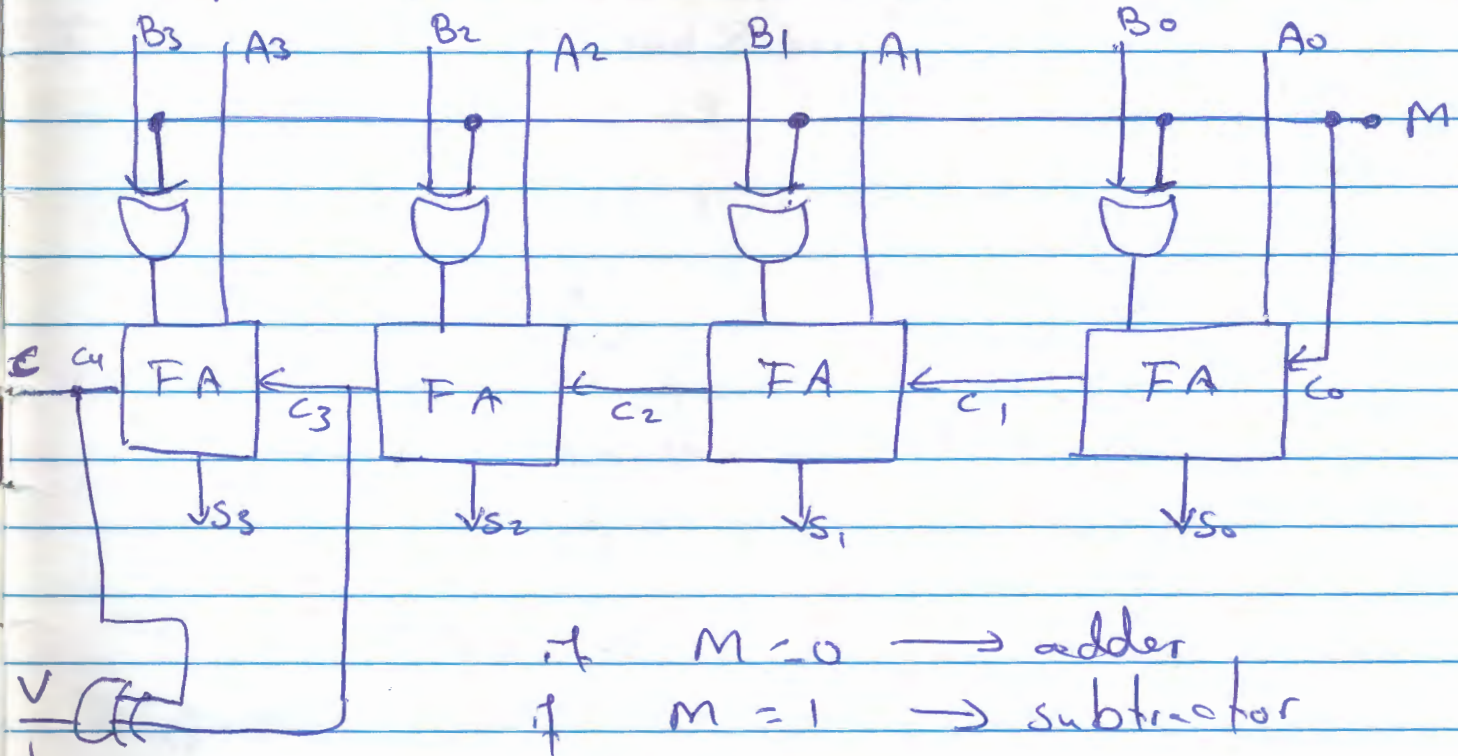 B3 A3 B2 A2 B1 A1 B0 A0
M
C C4 FA C3 FA C2 FA C1 FA C0
S3 S2 S1 S0
if M=0 → adder
V if M=1 → subtractor